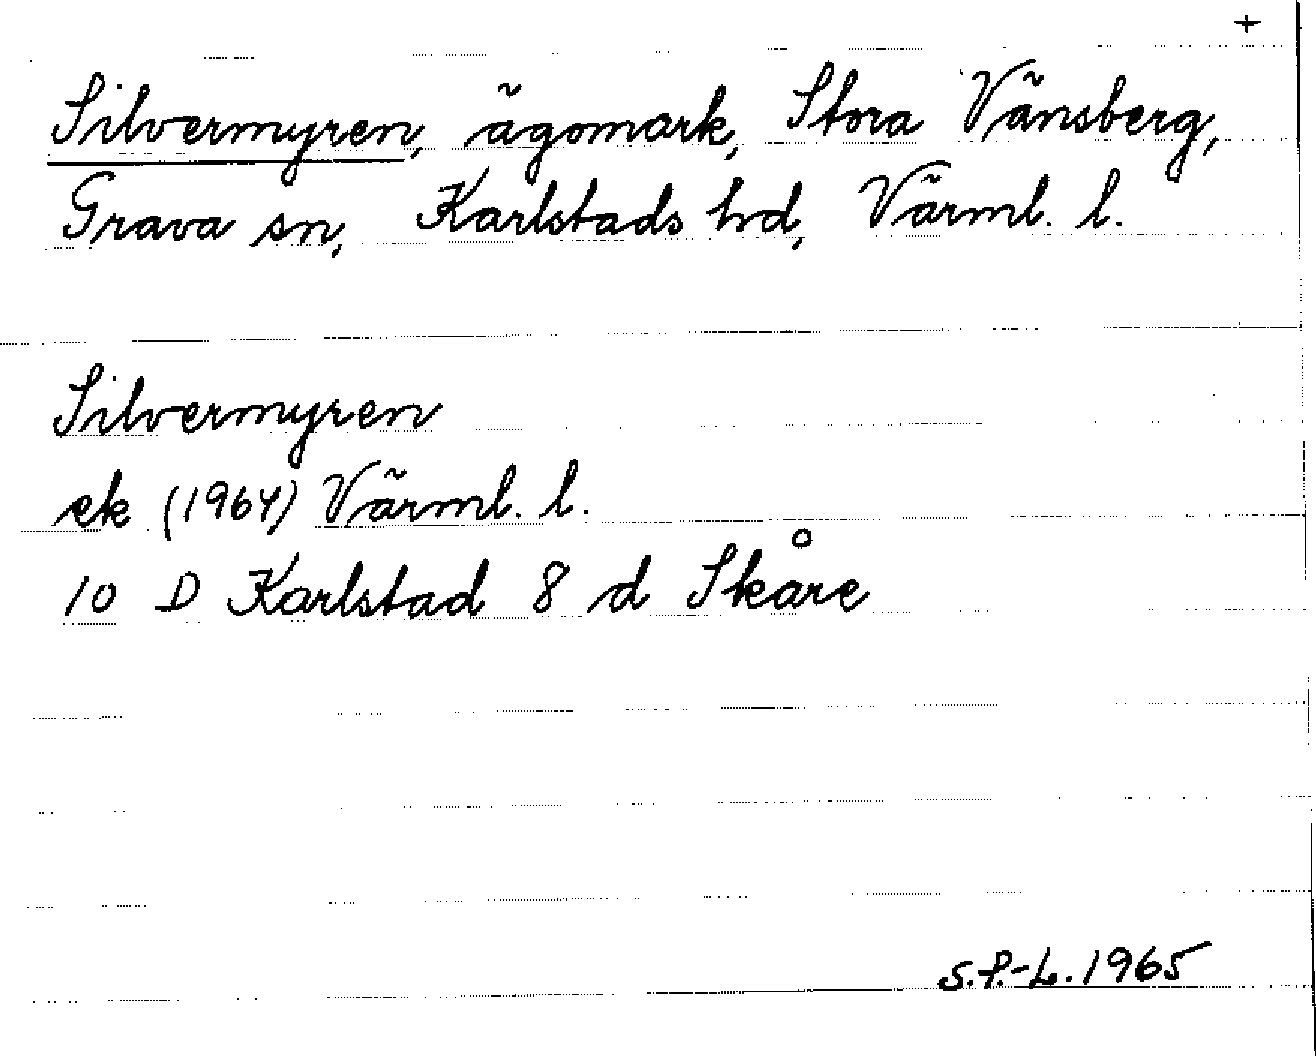 +
Silvermyren, ägomark, Stora Vänsberg,
Grava sn, Karlstads hd, Värml. l.
Silvermyren
ek (1964) Värml. l.
10 D Karlstad 8 d Skåre
S.P.-L. 1965